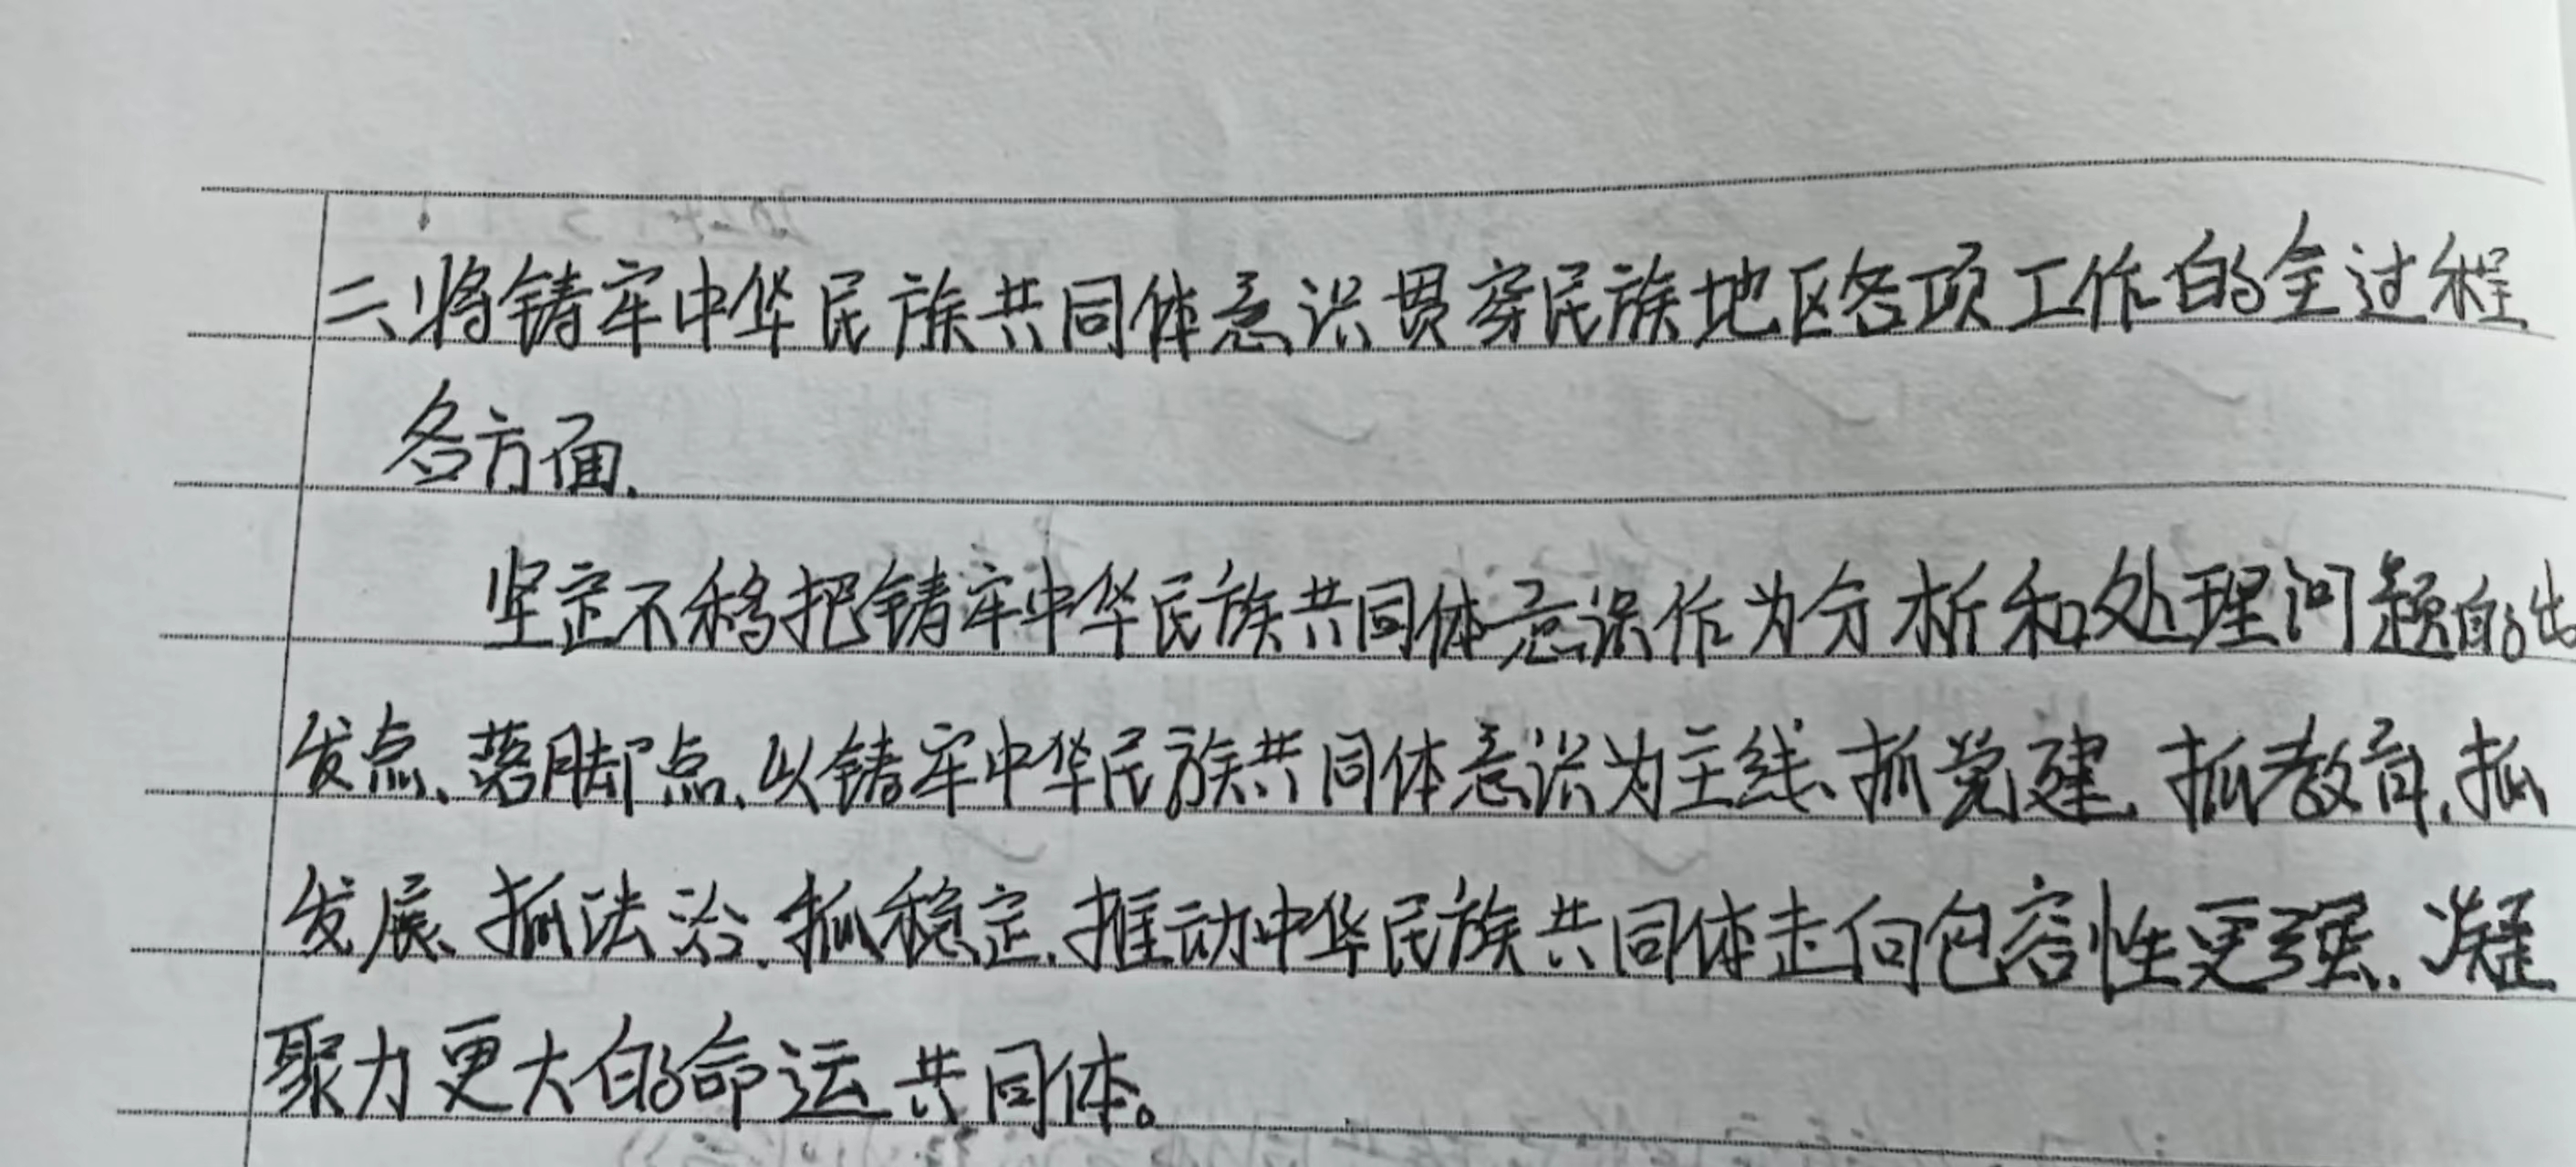 二、将铸牢中华民族共同体意识贯穿民族地区各项工作的全过程
各方面.
坚定不移把铸牢中华民族共同体意识作为分析和处理问题的出
发点、落脚点、以铸牢中华民族共同体意识为主线、抓党建、抓教育、抓
发展、抓法治、抓稳定、推动中华民族共同体走向包容性更强、凝
聚力更大的命运共同体。